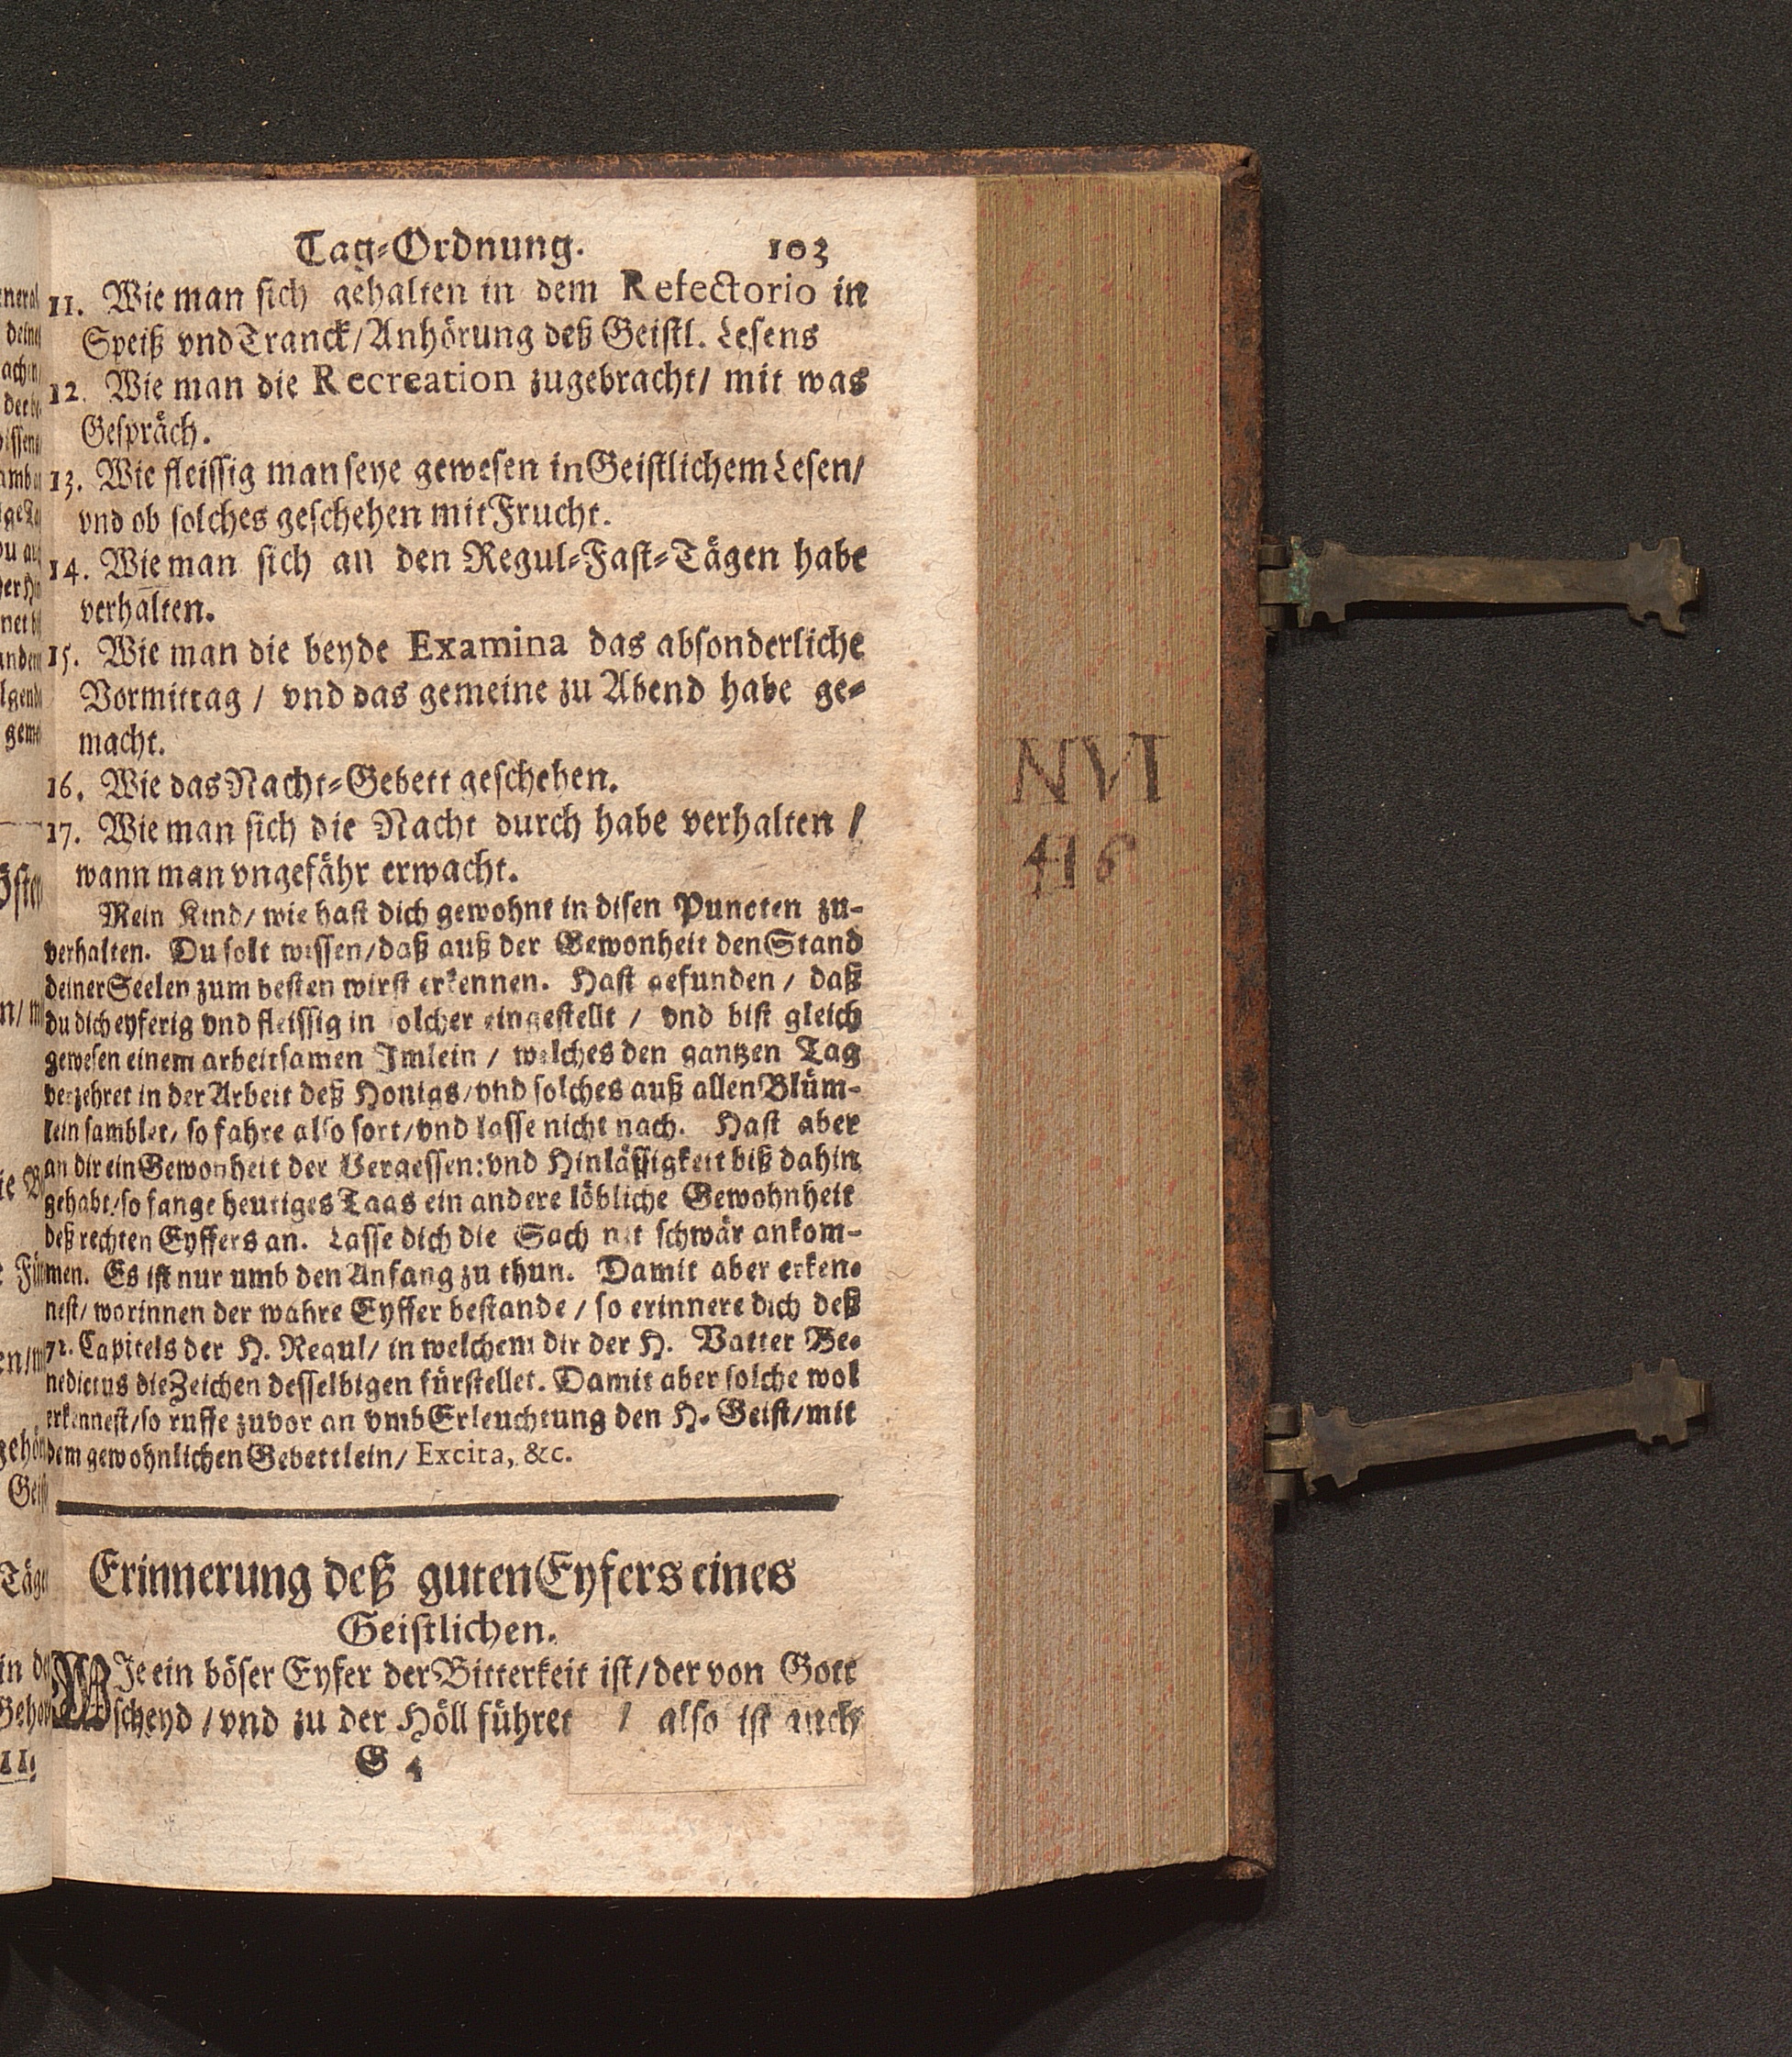 Tag-Ordnung. 103
11. Wie man sich gehalten in dem Refectorio in
Speiß vnd Tranck / Anhörung deß Geistl. Lesens
12. Wie man die Recreation zugebracht / mit was
Gespräch.
13. Wie fleissig man seye gewesen in Geistlichem Lesen /
vnd ob solches geschehen mit Frucht.
14. Wie man sich an den Regul-Fast-Tägen habe
verhalten.
15. Wie man die beyde Examina das absonderliche
Vormittag / vnd das gemeine zu Abend habe ge-
macht.
16. Wie das Nacht-Gebett geschehen.
17. Wie man sich die Nacht durch habe verhalten /
wann man vngefähr erwacht.
Mein Kind / wie hast dich gewohnt in disen Puncten zu-
verhalten. Du solt wissen / daß auß der Gewonheit den Stand
deiner Seelen zum besten wirst erkennen. Hast gefunden / daß
du dich eyferig vnd fleissig in solcher eingestellt / vnd bist gleich
gewesen einem arbeitsamen Imlein / welches den gantzen Tag
verzehret in der Arbeit deß Honigs / vnd solches auß allen Blüm-
lein samblet / so fahre also fort / vnd lasse nicht nach. Hast aber
an dir ein Gewonheit der Vergessen: vnd Hinlässigkeit biß dahin
gehabt / so fange heutiges Tags ein andere löbliche Gewohnheit
deß rechten Eyffers an. Lasse dich die Sach nit schwär ankom-
men. Es ist nur umb den Anfang zu thun. Damit aber erken-
nest / worinnen der wahre Eyffer bestande / so erinnere dich deß
72. Capitels der H. Regul / in welchem dir der H. Vatter Be-
nedictus die Zeichen desselbigen fürstellet. Damit aber solche wol
erkennest / so ruffe zuvor an vmb Erleuchtung den H. Geist / mit
dem gewohnlichen Gebettlein / Excita, &c.
Erinnerung deß guten Eyfers eines
Geistlichen.
WIe ein böser Eyfer der Bitterkeit ist / der von Gott
scheyd / vnd zu der Höll führet / also ist auch
G 4
NVI
416